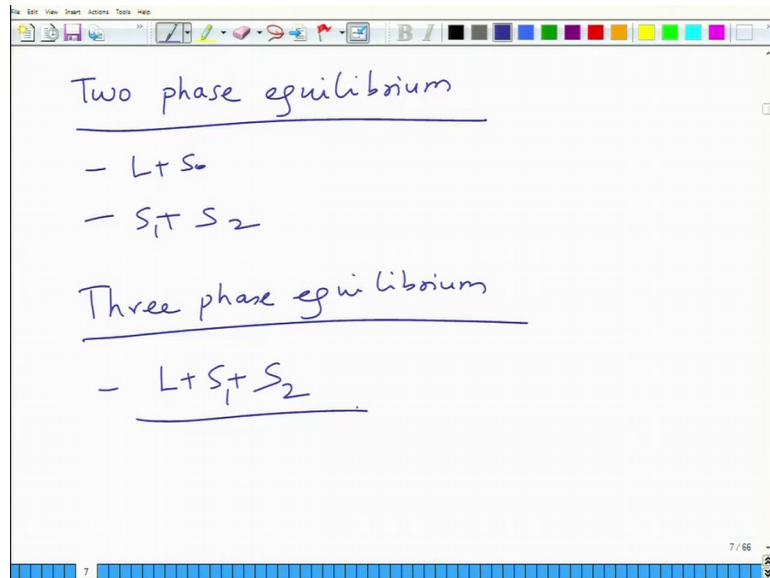 File Edit View Insert Actions Tools Help
B I
Two phase equilibrium
- L+S
- S₁+ S₂
Three phase equilibrium
- L+S₁+ S₂
7 / 66
7